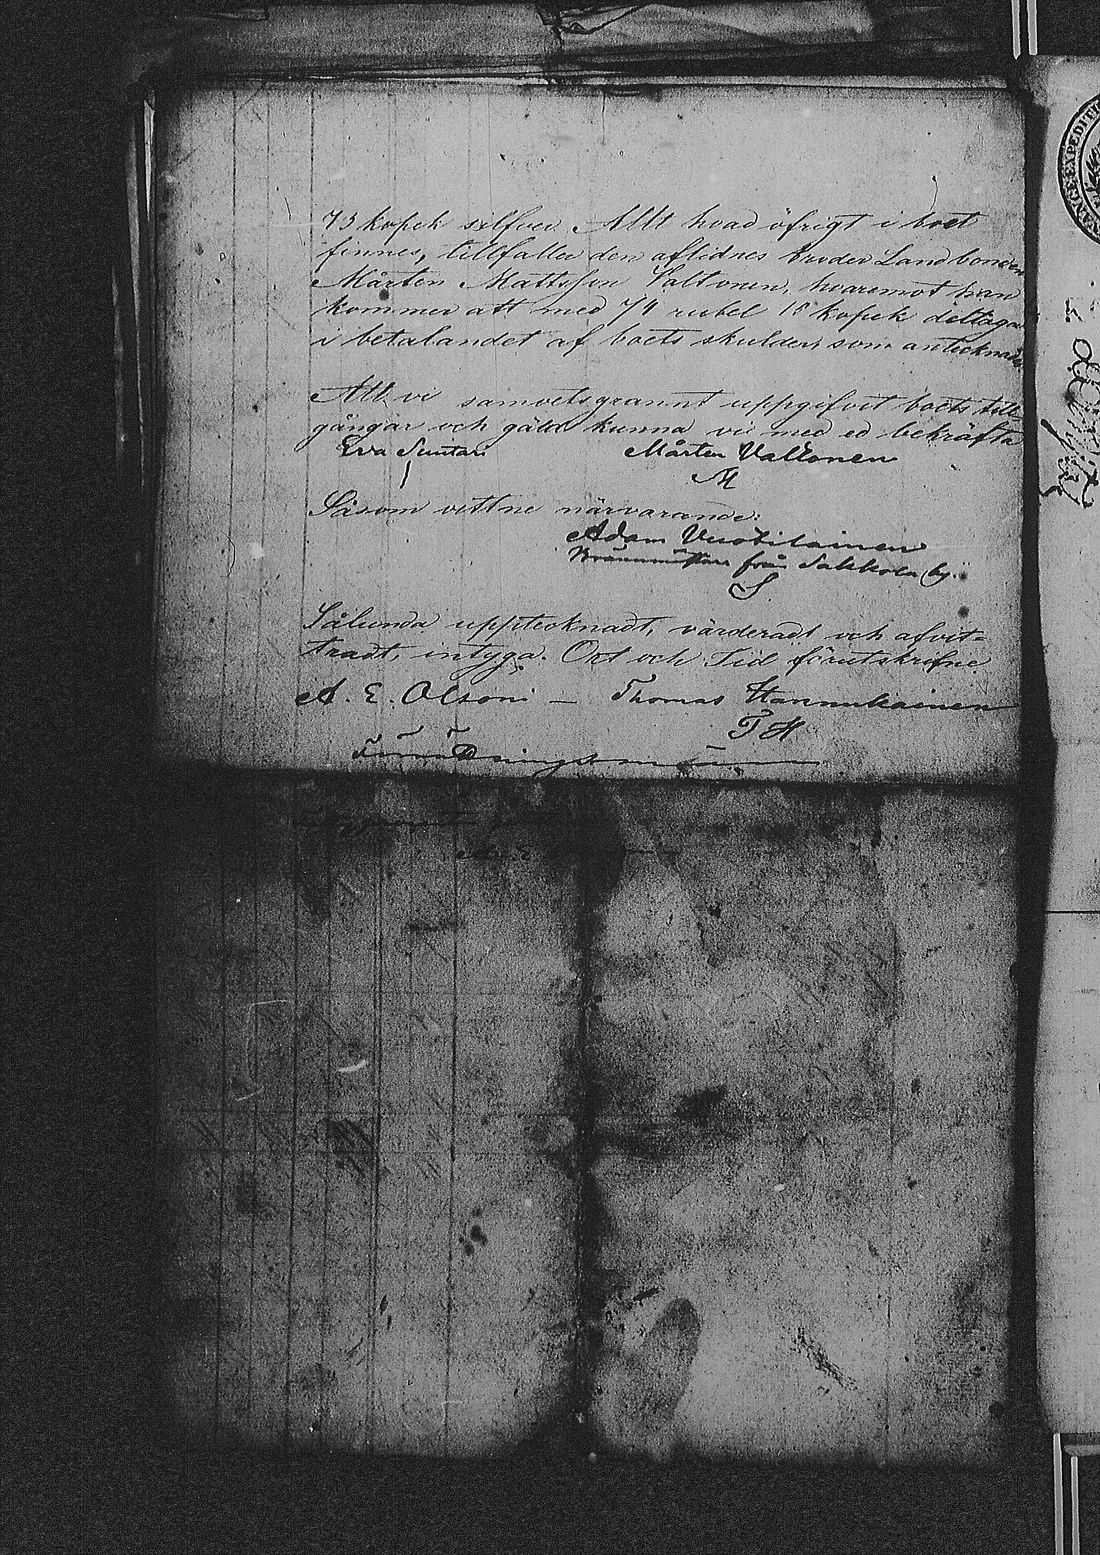 73 kopek silfver. Allt hvad öfrigt i boet
finnes, tillfaller den aflidnes broder Landbonden
Mårten Mattsson Valtonen, hvaremot han
kommer att med 74 rubel 18 kopek deltaga
i betalandet af boets skulder, som antecknade
Att vi samvetsgrannt uppgifvit boets till-
gångar och gäld kunna vi med ed bekräfta
Eva Suntari Mårten Valtonen
M
Såsom vittne närvarande:
Adam Vuotilainen
från Sakkola by.
S
Sålunda upptecknadt, värderadt och afvit-
tradt, intyga. Ort och Tid förutskrifne
A. E. Olsoni — Thomas Hannukainen
T H
RANCE-EXPEDITI